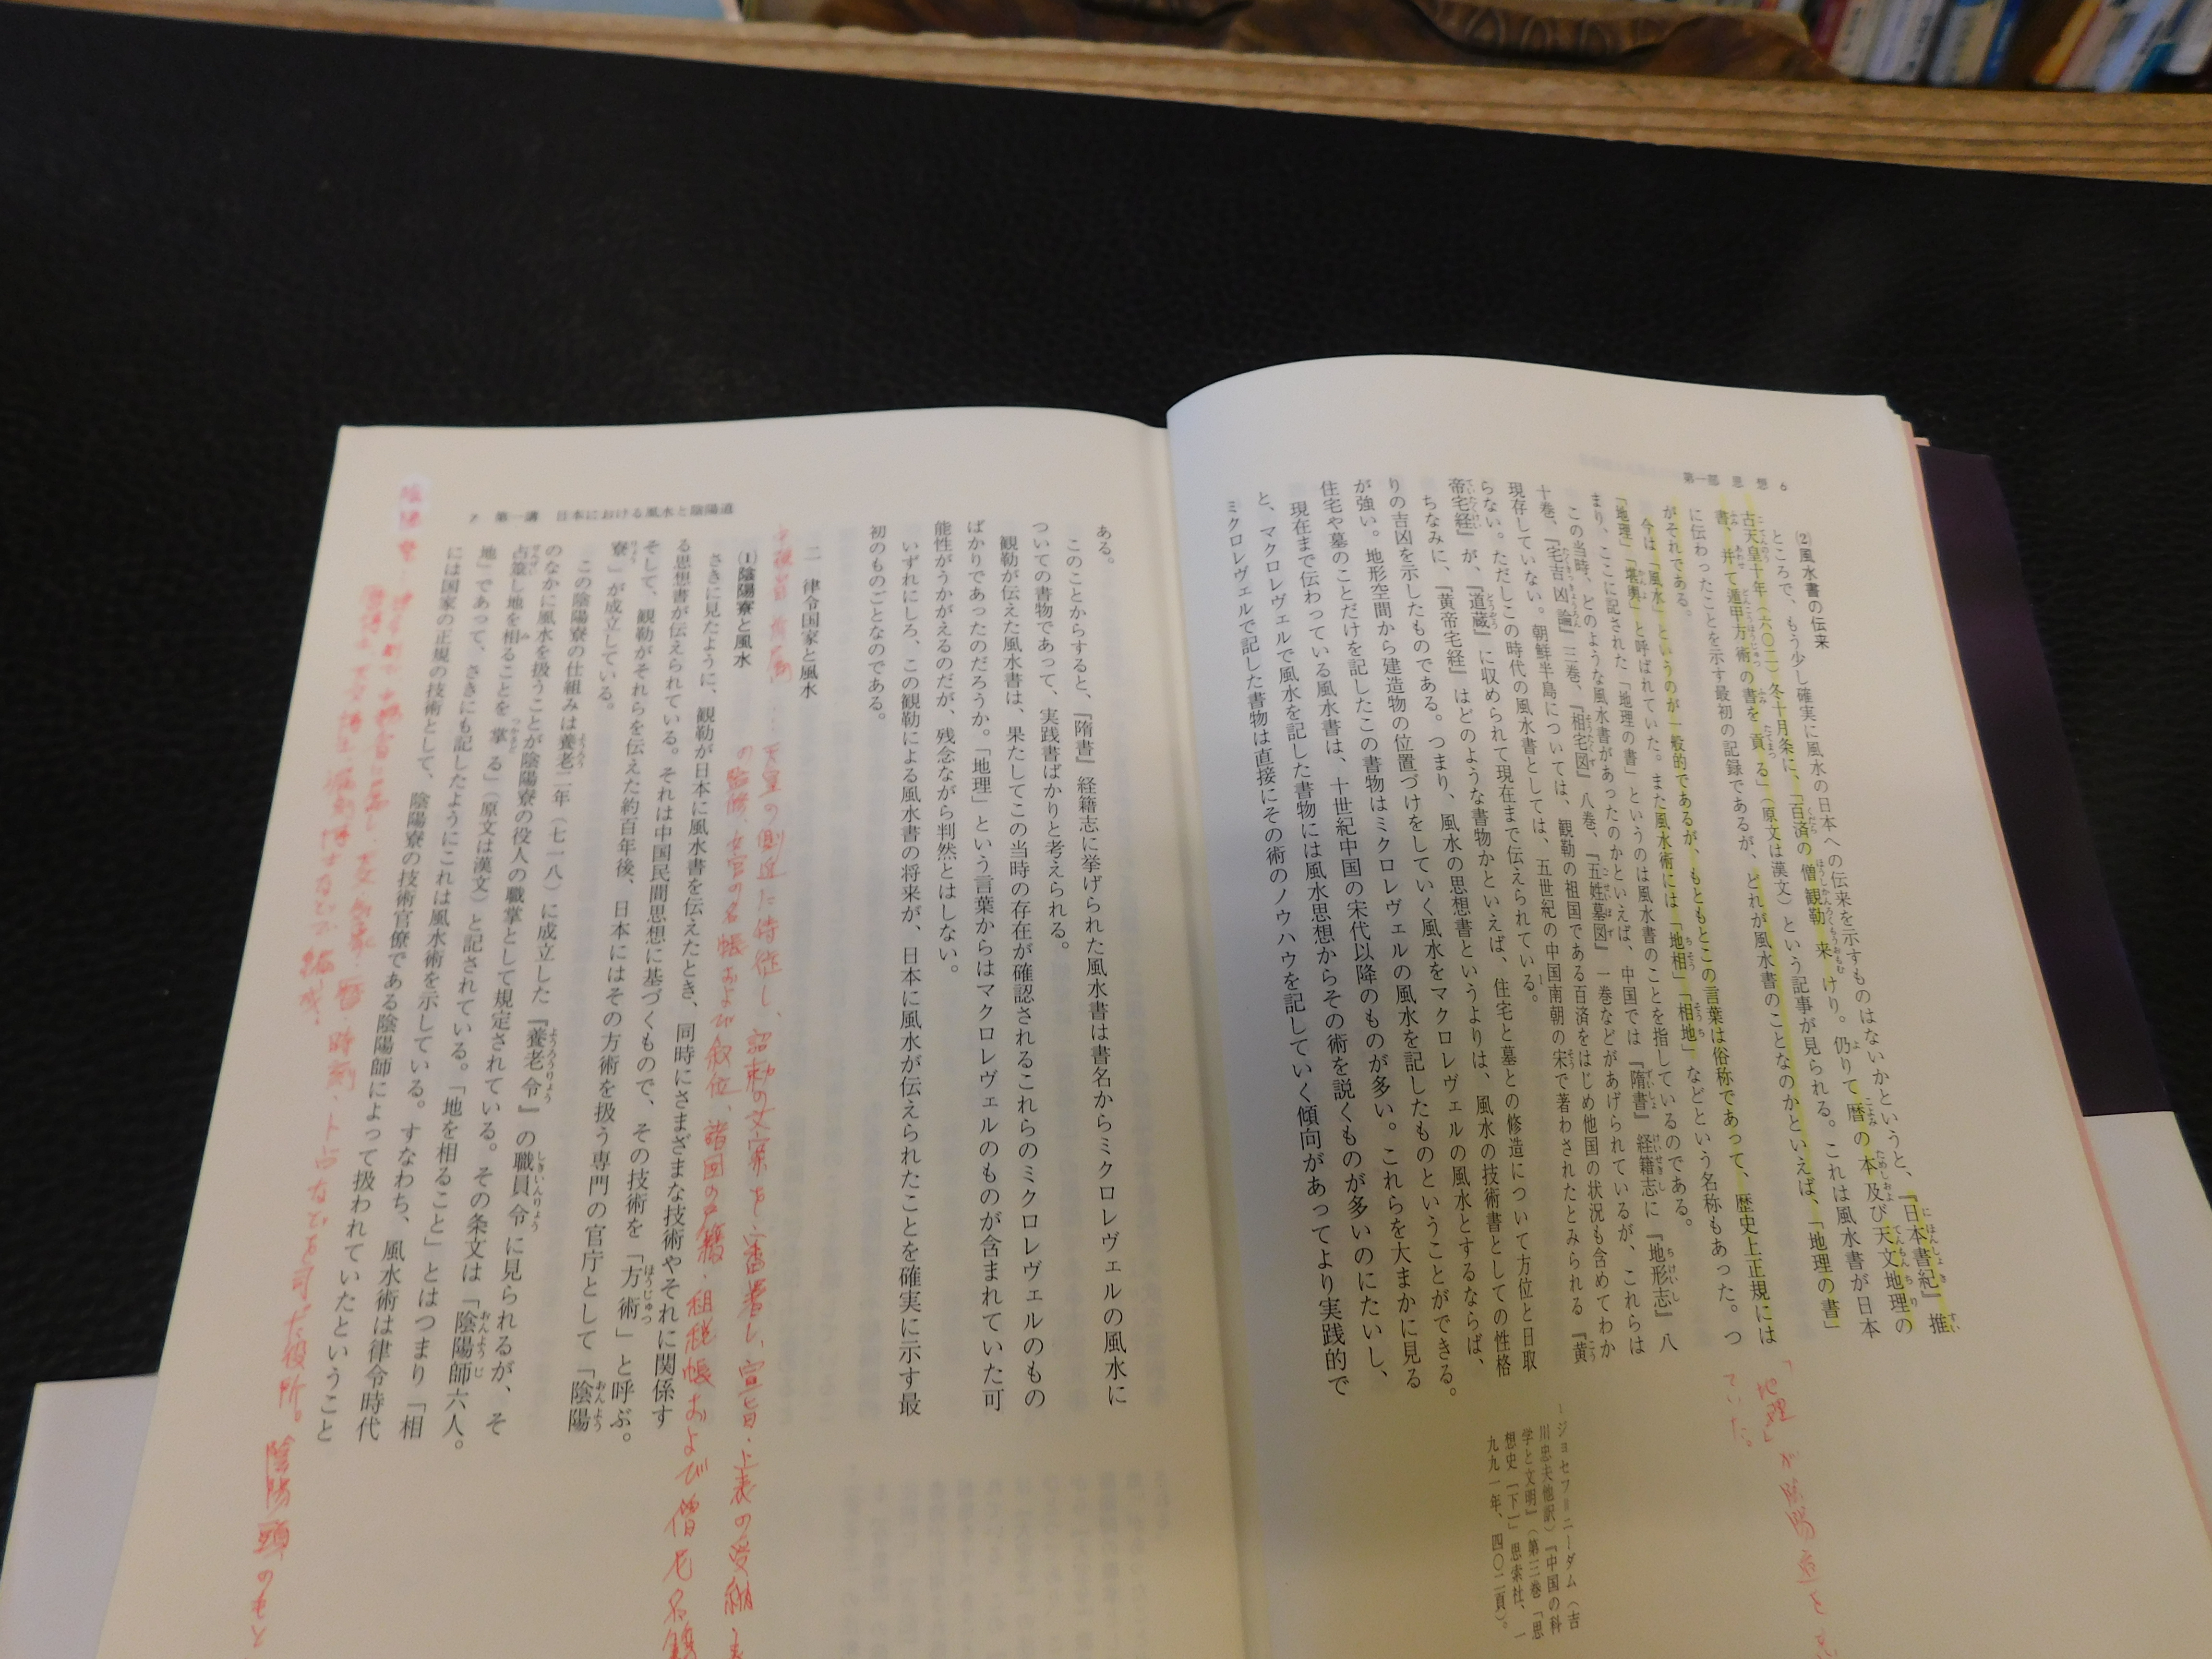 第一部 思想 6
(2) 風水書の伝来
ところで、もう少し確実に風水の日本への伝来を示すものはないかというと、『日本書紀』推
古天皇十年(六〇二)冬十月条に、「百済の僧観勒来けり。仍りて暦の本及び天文地理の
書、并て遁甲方術の書を貢る」(原文は漢文)という記事が見られる。これは風水書が日本
に伝わったことを示す最初の記録であるが、どれが風水書のことなのかといえば、「地理の書」
がそれである。
今は「風水」というのが一般的であるが、もともとこの言葉は俗称であって、歴史上正規には
「地理」「堪輿」と呼ばれていた。また風水術には「地相」「相地」などという名称もあった。つ
まり、ここに記された「地理の書」というのは風水書のことを指しているのである。
この当時、どのような風水書があったのかといえば、中国では『隋書』経籍志に『地形志』八
十巻、『宅吉凶論』三巻、『相宅図』八巻、『五姓墓図』一巻などがあげられているが、これらは
現存していない。朝鮮半島については、観勒の祖国である百済をはじめ他国の状況も含めてわか
らない。ただしこの時代の風水書としては、五世紀の中国南朝の宋で著わされたとみられる『黄
帝宅経』が、『道蔵』に収められて現在まで伝えられている。
ちなみに、『黄帝宅経』はどのような書物かといえば、住宅と墓との修造について方位と日取
りの吉凶を示したものである。つまり、風水の思想書というよりは、風水の技術書としての性格
が強い。地形空間から建造物の位置づけをしていく風水をマクロレヴェルの風水とするならば、
住宅や墓のことだけを記したこの書物はミクロレヴェルの風水を記したものということができる。
現在まで伝わっている風水書は、十世紀中国の宋代以降のものが多い。これらを大まかに見る
と、マクロレヴェルで風水を記した書物には風水思想からその術を説くものが多いのにたいし、
ミクロレヴェルで記した書物は直接にその術のノウハウを記していく傾向があってより実践的で
1 ジョセフ=ニーダム(吉
川忠夫他訳)『中国の科
学と文明』(第三巻「思
想史[下]」思索社、一
九九一年、四〇二頁)。
「地理」が陰陽道と
ていた。
7 第一講 日本における風水と陰陽道
ある。
このことからすると、『隋書』経籍志に挙げられた風水書は書名からミクロレヴェルの風水に
ついての書物であって、実践書ばかりと考えられる。
観勒が伝えた風水書は、果たしてこの当時の存在が確認されるこれらのミクロレヴェルのもの
ばかりであったのだろうか。「地理」という言葉からはマクロレヴェルのものが含まれていた可
能性がうかがえるのだが、残念ながら判然とはしない。
いずれにしろ、この観勒による風水書の将来が、日本に風水が伝えられたことを確実に示す最
初のものごとなのである。
二 律令国家と風水
中務省
天皇の側近に侍従し、詔勅の文案を審署し、宣旨・上表の受納
の監修、女官の名帳および叙位、諸国の戸籍・租税帳および僧尼名籍
(1) 陰陽寮と風水
さきに見たように、観勒が日本に風水書を伝えたとき、同時にさまざまな技術やそれに関係す
る思想書が伝えられている。それは中国民間思想に基づくもので、その技術を「方術」と呼ぶ。
そして、観勒がそれらを伝えた約百年後、日本にはその方術を扱う専門の官庁として「陰陽
寮」が成立している。
この陰陽寮の仕組みは養老二年(七一八)に成立した『養老令』の職員令に見られるが、そ
のなかに風水を扱うことが陰陽寮の役人の職掌として規定されている。その条文は「陰陽師六人。
占筮し地を相ることを掌る」(原文は漢文)と記されている。「地を相ること」とはつまり「相
地」であって、さきにも記したようにこれは風水術を示している。すなわち、風水術は律令時代
には国家の正規の技術として、陰陽寮の技術官僚である陰陽師によって扱われていたということ
陰陽寮
中務省に属し、天文・気象・暦・時刻・卜占などを司った役所。陰陽頭のもと
暦博士、天文博士、漏刻博士などで編成。